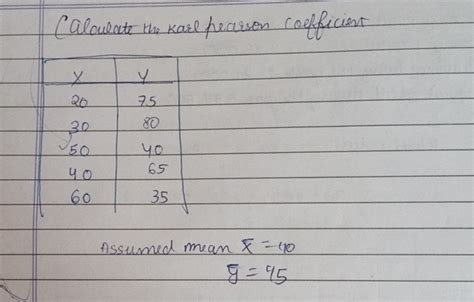 Calculate the Karl pearson coefficient
X Y
20 75
30 80
50 40
40 65
60 35
Assumed mean x̄ = 40
ȳ = 45